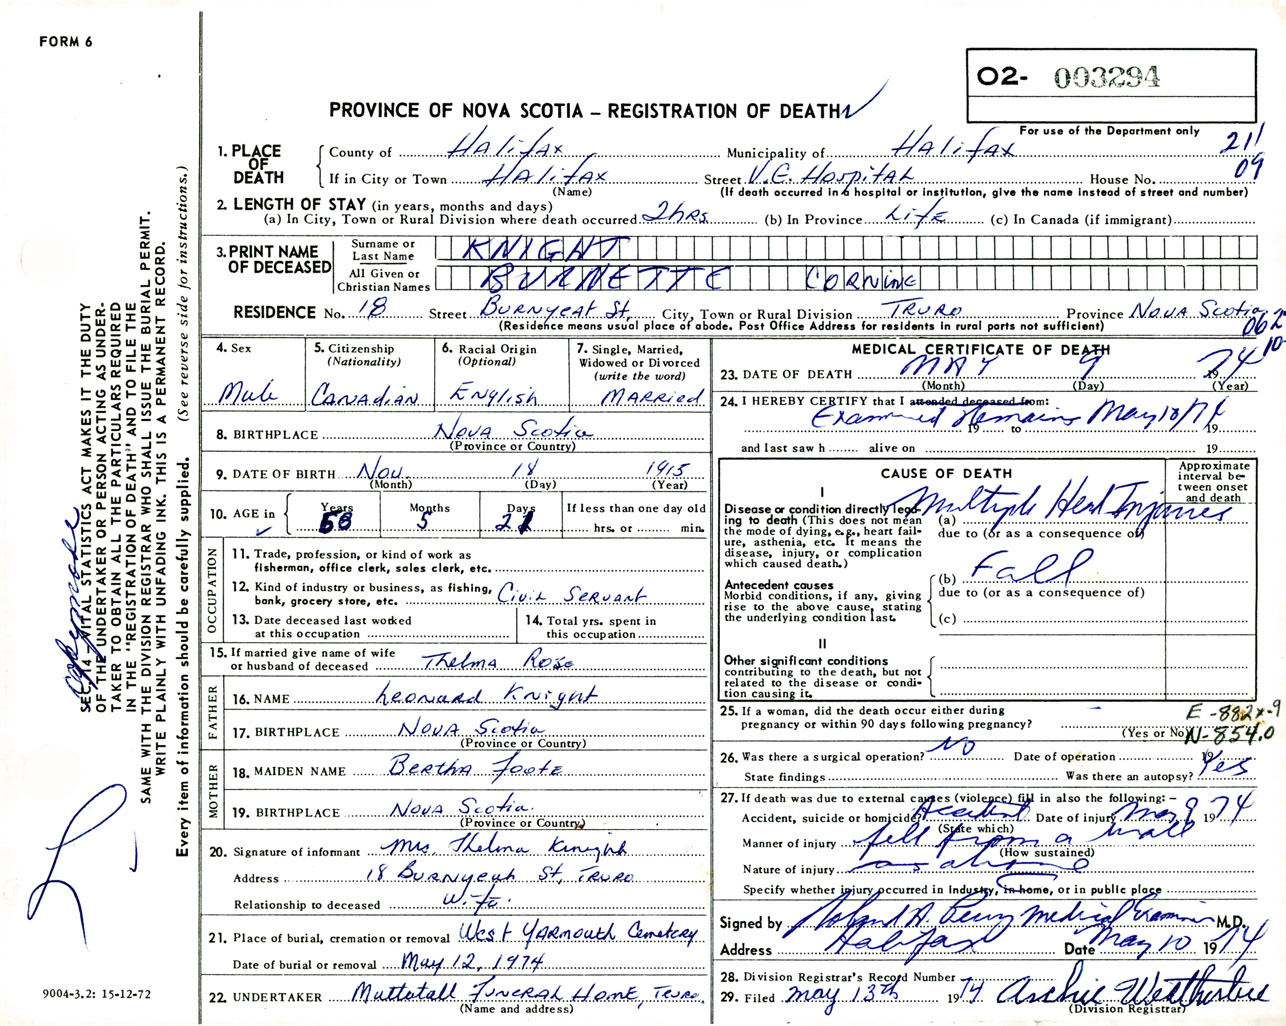 FORM 6
O2- 003294
PROVINCE OF NOVA SCOTIA – REGISTRATION OF DEATH
For use of the Department only
211
09
1. PLACE OF DEATH
County of Halifax Municipality of Halifax
If in City or Town Halifax Street V.G. Hospital House No.
(Name) (If death occurred in a hospital or institution, give the name instead of street and number)
2. LENGTH OF STAY (in years, months and days)
(a) In City, Town or Rural Division where death occurred 2hrs (b) In Province Life (c) In Canada (if immigrant)
3. PRINT NAME OF DECEASED
Surname or Last Name KNIGHT
All Given or Christian Names BURNETTE CORNING
RESIDENCE No. 18 Street Burnyeat St. City, Town or Rural Division TRURO Province NOVA SCOTIA
(Residence means usual place of abode. Post Office Address for residents in rural parts not sufficient)
062
10-
4. Sex Male
5. Citizenship (Nationality) CANADIAN
6. Racial Origin (Optional) English
7. Single, Married, Widowed or Divorced (write the word) MARRIED
8. BIRTHPLACE Nova Scotia
(Province or Country)
9. DATE OF BIRTH Nov. 18 1915
(Month) (Day) (Year)
10. AGE in Years 58 Months 5 Days 21 If less than one day old
hrs. or min.
OCCUPATION
11. Trade, profession, or kind of work as fisherman, office clerk, sales clerk, etc.
12. Kind of industry or business, as fishing, bank, grocery store, etc. Civil Servant
13. Date deceased last worked at this occupation
14. Total yrs. spent in this occupation
15. If married give name of wife or husband of deceased Thelma Rose
FATHER
16. NAME Leonard Knight
17. BIRTHPLACE Nova Scotia
(Province or Country)
MOTHER
18. MAIDEN NAME Bertha Foote
19. BIRTHPLACE Nova Scotia.
(Province or Country)
20. Signature of informant Mrs. Thelma Knight
Address 18 Burnyeat St, Truro
Relationship to deceased Wife.
21. Place of burial, cremation or removal West Yarmouth Cemetery
Date of burial or removal May 12, 1974
22. UNDERTAKER Mattatall Funeral Home, Truro.
(Name and address)
MEDICAL CERTIFICATE OF DEATH
23. DATE OF DEATH MAY 9 1974
(Month) (Day) (Year)
24. I HEREBY CERTIFY that I attended deceased from:
Examined Remains May 10/74
19 to 19
and last saw h alive on 19
CAUSE OF DEATH
Approximate interval between onset and death
I
Disease or condition directly leading to death (This does not mean the mode of dying, e.g., heart failure, asthenia, etc. It means the disease, injury, or complication which caused death.)
(a) Multiple Head Injuries
due to (or as a consequence of)
Antecedent causes
Morbid conditions, if any, giving rise to the above cause, stating the underlying condition last.
(b) Fall
due to (or as a consequence of)
(c)
II
Other significant conditions contributing to the death, but not related to the disease or condition causing it.
25. If a woman, did the death occur either during pregnancy or within 90 days following pregnancy? –
(Yes or No)
E-882x-9
N-854.0
26. Was there a surgical operation? No Date of operation 19
State findings Was there an autopsy? Yes
27. If death was due to external causes (violence) fill in also the following: –
Accident, suicide or homicide? Accident Date of injury May 9 1974
(State which)
Manner of injury fell from a wall
(How sustained)
Nature of injury as above
Specify whether injury occurred in Industry, in home, or in public place
Signed by Roland A. Perry Medical Examiner M.D.
Address Halifax Date May 10 1974
28. Division Registrar's Record Number
29. Filed May 13th 1974 Archie Weatherbee
(Division Registrar)
SEC. 14 – VITAL STATISTICS ACT MAKES IT THE DUTY
OF THE UNDERTAKER OR PERSON ACTING AS UNDER-
TAKER TO OBTAIN ALL THE PARTICULARS REQUIRED
IN THE "REGISTRATION OF DEATH" AND TO FILE THE
SAME WITH THE DIVISION REGISTRAR WHO SHALL ISSUE THE BURIAL PERMIT.
WRITE PLAINLY WITH UNFADING INK. THIS IS A PERMANENT RECORD.
Every item of information should be carefully supplied. (See reverse side for instructions.)
9004-3.2: 15-12-72